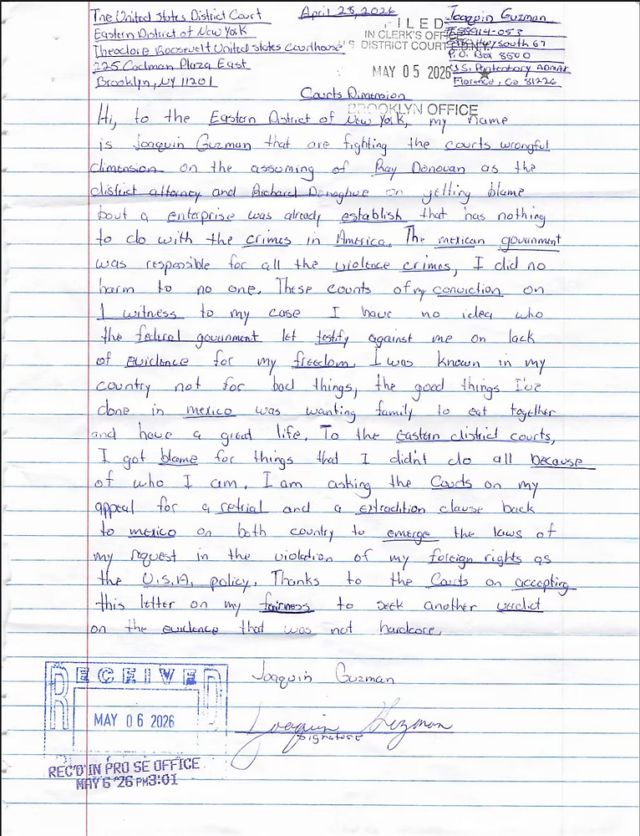 The United States District Court
Eastern District of New York
Theodore Roosevelt United States Courthouse
225 Cadman Plaza East
Brooklyn, NY 11201
April 25, 2026
FILED
IN CLERK'S OFFICE
U.S. DISTRICT COURT
MAY 05 2026 ★
BROOKLYN OFFICE
Joaquin Guzman
P.O. Box 8500
Florence, Co 81226
Courts Dimension
Hi, to the Eastern District of New York, my name
is Joaquin Guzman that are fighting the courts wrongful
dimension on the assuming of Ray Donovan as the
district attorney and Richard Donoghue on getting blame
but a enterprise was already establish that has nothing
to do with the crimes in America. The mexican government
was responsible for all the violence crimes, I did no
harm to no one. These counts of my conviction on
1 witness to my case I have no idea who
the federal government let testify against me on lack
of evidence for my freedom. I was known in my
country not for bad things, the good things I've
done in mexico was wanting family to eat together
and have a great life. To the Eastern district courts,
I got blame for things that I didn't do all because
of who I am. I am asking the Courts on my
appeal for a retrial and a extradition clause back
to mexico on both country to emerge the laws of
my request in the violation of my foreign rights as
the U.S.A. policy. Thanks to the Courts on accepting
this letter on my fairness to seek another verdict
on the evidence that was not hardcore.
Joaquin Guzman
Joaquin Guzman
signature
RECEIVED
MAY 06 2026
REC'D IN PRO SE OFFICE
MAY 6 '26 PM3:01